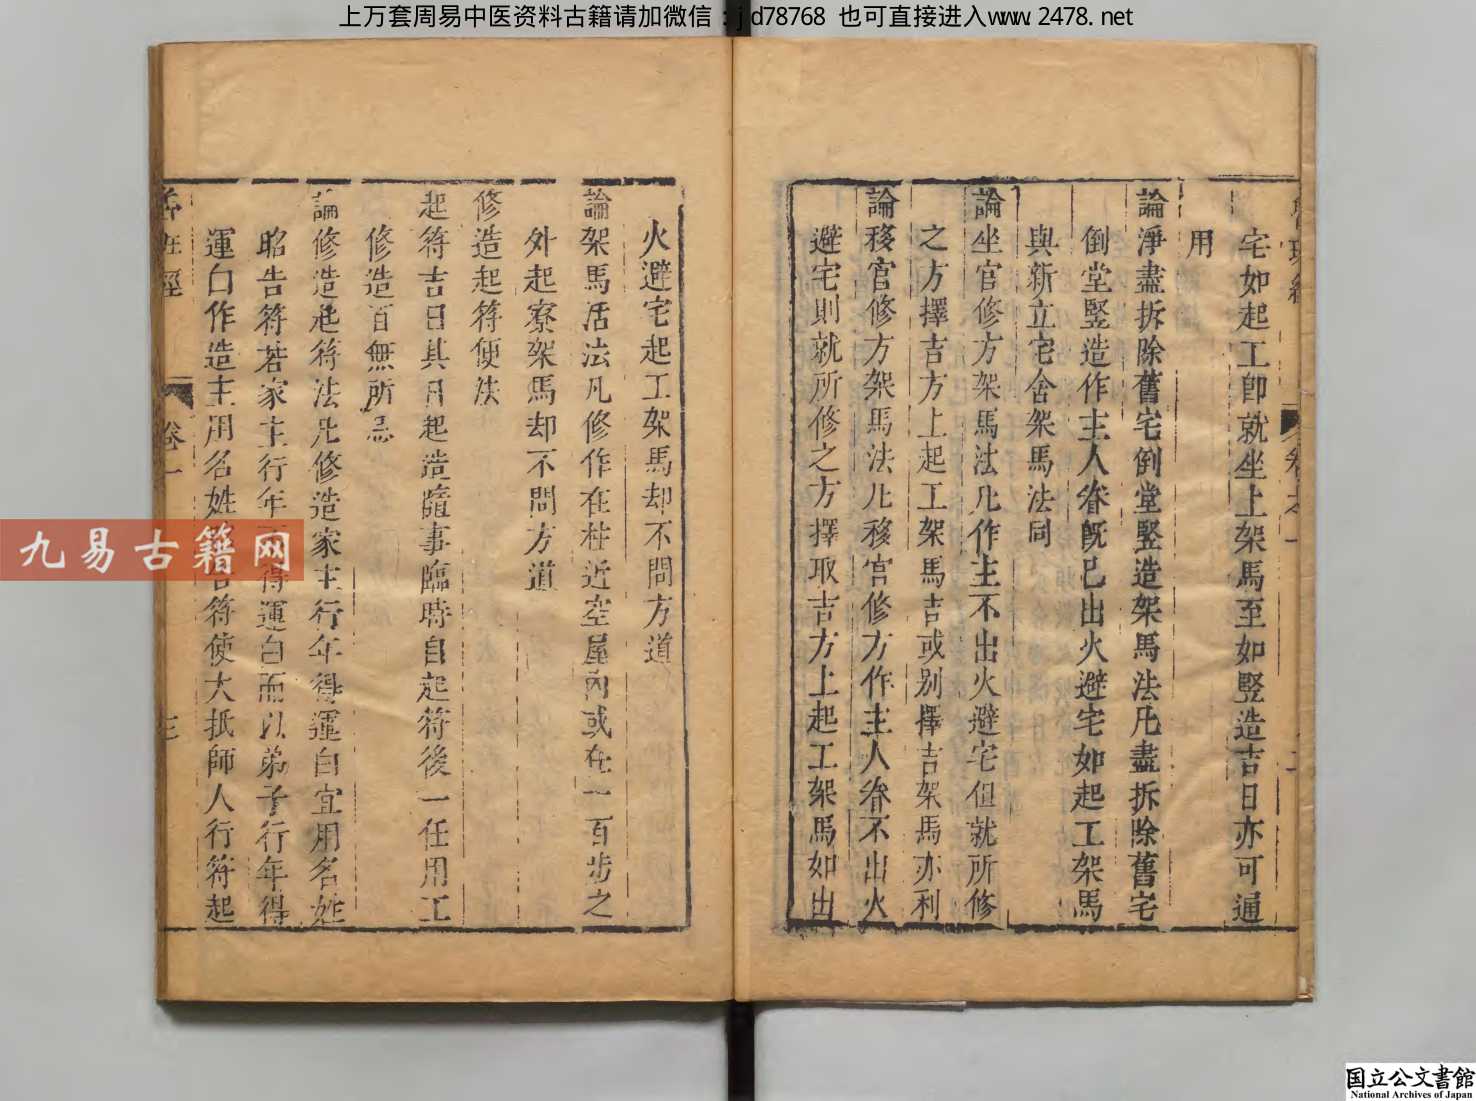 上万套周易中医资料古籍请加微信：jd78768 也可直接进入www.2478.net
宅如起工卽就坐上架馬至如竪造吉日亦可通
用
論淨盡拆除舊宅倒堂竪造架馬法凡盡拆除舊宅
倒堂竪造作主人眷旣已出火避宅如起工架馬
與新立宅舍架馬法同
論坐宫修方架馬法凡作主不出火避宅但就所修
之方擇吉方上起工架馬吉或别擇吉架馬亦利
論移宫修方架馬法凡移宫修方作主人眷不出火
避宅則就所修之方擇取吉方上起工架馬如出
火避宅起工架馬却不問方道
論架馬活法凡修作在柱近空屋内或在一百步之
外起寮架馬却不問方道
修造起符便法
起符吉日其日起造隨事臨時自起符後一任用工
修造百無所忌
論修造起符法凡修造家主行年得運白宜用名姓
昭告符若家主行年得運白而以弟子行年得
運白作造主用名姓符使大抵師人行符起
卷一
九易古籍网
国立公文書館
National Archives of Japan